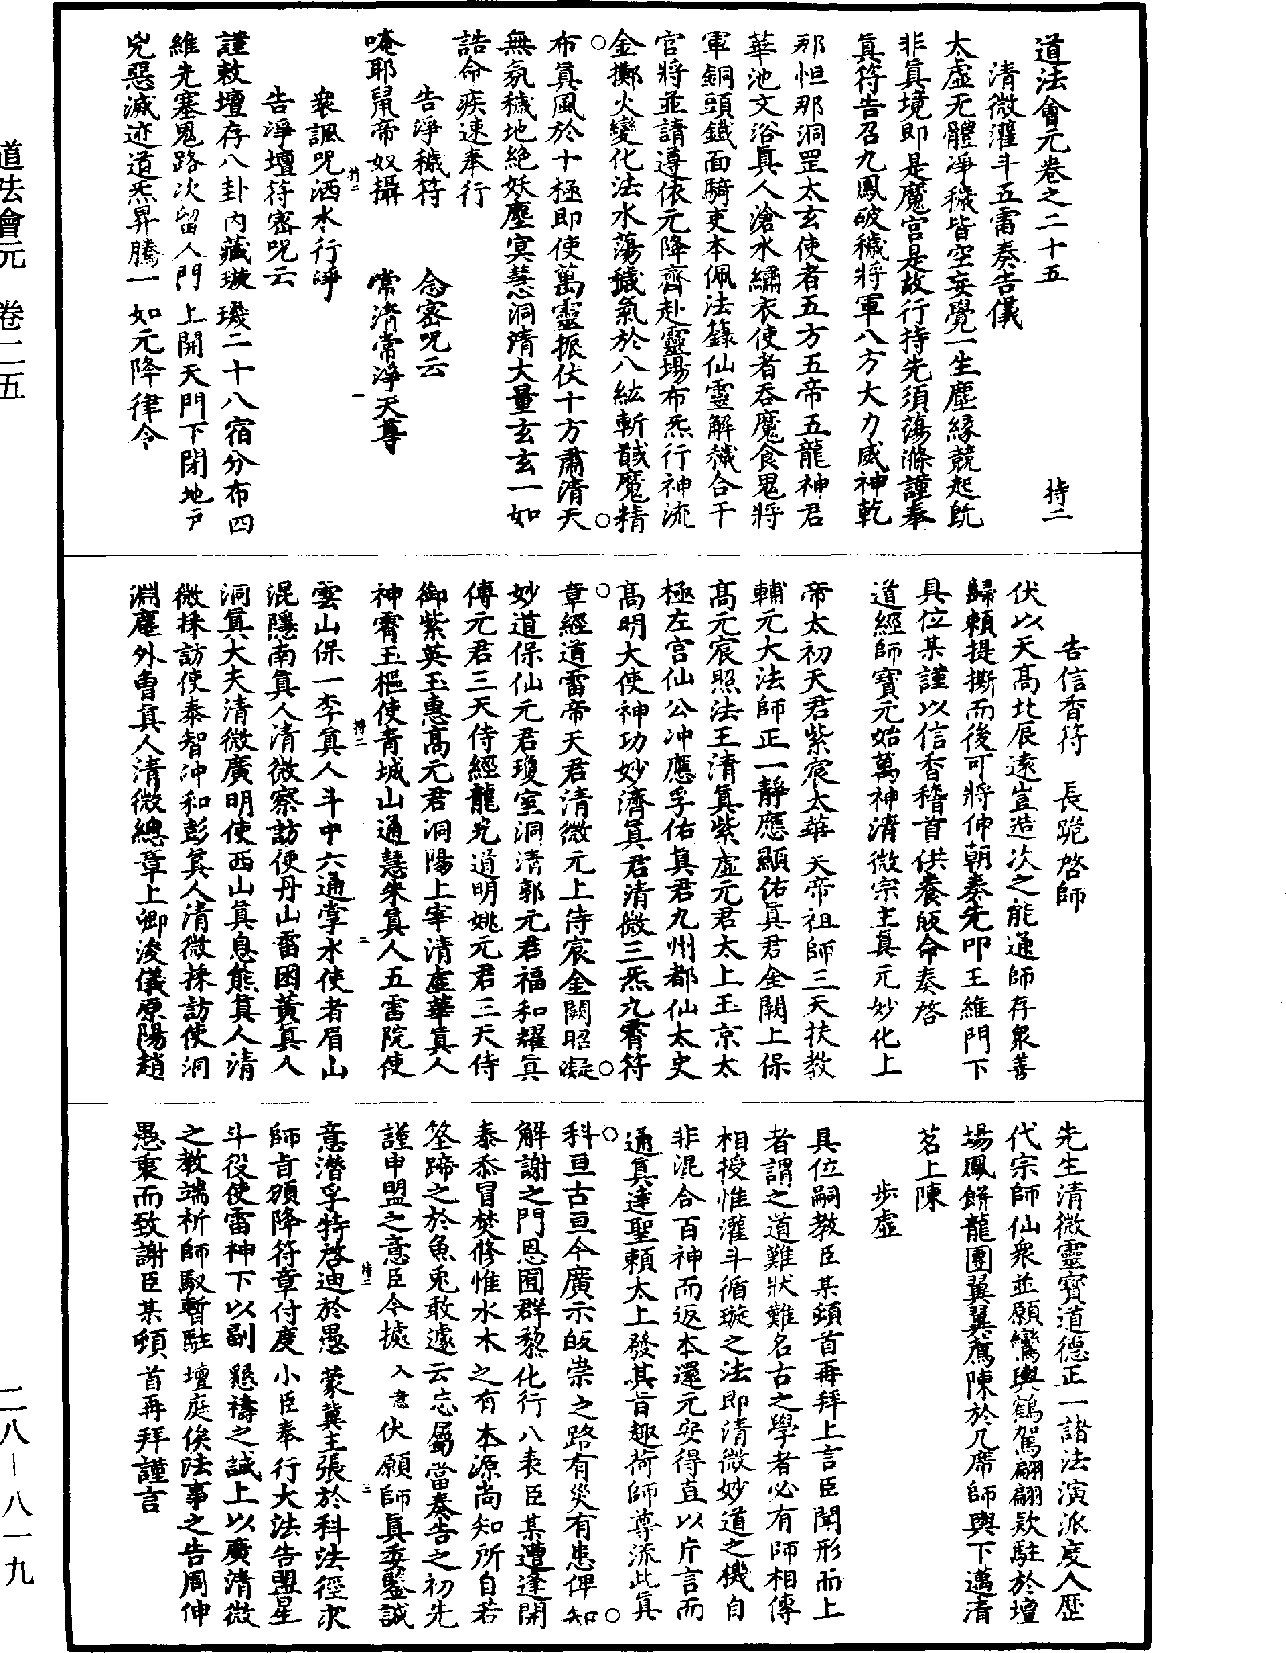 道法會元卷之二十五
持二
清微灌斗五雷奏告儀
太虛无體淨穢皆空妄覺一生塵緣競起既
非真境即是魔宫是故行持先須蕩滌謹奉
真符告召九鳳破穢將軍八方大力威神乾
那怛那洞罡太玄使者五方五帝五龍神君
華池文浴真人滄水繡衣使者吞魔食鬼將
軍銅頭鐵面騎吏本佩法籙仙靈解穢合干
官將並請遵依元降齊赴靈場布炁行神流
金擲火變化法水蕩穢氣於八紘斬馘魔精
布真風於十極即使萬靈振伏十方肅清天
無氛穢地絕妖塵冥慧洞清大量玄玄一如
誥命疾速奉行
告淨穢符　念密呪云
唵耶鼠帝奴攝　常清常淨天尊
衆諷呪洒水行淨
告淨壇符密呪云
謹敕壇存八卦内藏璇璣二十八宿分布四
維先塞鬼路次留人門上開天門下閉地户
兇惡滅迹道炁昇騰一如元降律令
告信香符　長跪啓師
伏以天高北辰遠豈造次之能通師存衆善
歸賴提撕而後可將伸朝奏先叩王維門下
具位某謹以信香稽首供養皈命奏啓
道經師寶元始萬神清微宗主真元妙化上
帝太初天君紫宸太華天帝祖師三天扶教
輔元大法師正一靜應顯佑真君金闕上保
高元宸照法王清真紫虛元君太上玉京太
極左宫仙公冲應孚佑真君九州都仙太史
高明大使神功妙濟真君清微三炁九霄符
章經道雷帝天君清微元上侍宸金闕昭凝
妙道保仙元君瓊室洞清郭元君福和耀真
傳元君三天侍經龍光道明姚元君三天侍
御紫英玉惠高元君洞陽上宰清虛華真人
神霄玉樞使青城山通慧朱真人五雷院使
雲山保一李真人斗中六通掌水使者眉山
混隱南真人清微察訪使丹山雷困黃真人
洞真大夫清微廣明使西山真息熊真人清
微採訪使泰智冲和彭真人清微採訪使洞
淵塵外曹真人清微總章上卿浚儀原陽趙
先生清微靈寶道德正一諸法演派度人歷
代宗師仙衆並願鸞輿鶴駕翩翩欵駐於壇
場鳳餅龍團翼翼薦陳於几席師輿下邁清
茗上陳
步虛
具位嗣教臣某頓首再拜上言臣聞形而上
者謂之道難狀難名古之學者必有師相傳
相授惟灌斗循璇之法即清微妙道之機自
非混合百神而返本還元安得直以片言而
通真達聖賴太上發其旨趣荷師尊流此真
科亘古亘今廣示皈崇之路有災有患俾知
解謝之門恩囿群黎化行八表臣某遭逢開
泰忝冒焚修惟水木之有本源尚知所自若
筌蹄之於魚兎敢遽云忘屬當奏告之初先
謹申盟之意臣今據入意伏願師真委鑒誠
意潛孚特啓迪於愚蒙冀主張於科法徑求
師旨頒降符章付度小臣奉行大法告盟星
斗役使雷神下以副懇禱之誠上以廣清微
之教端祈師馭暫駐壇庭俟法事之告周伸
愚衷而致謝臣某頓首再拜謹言
道法會元　卷二五
二八－八一九